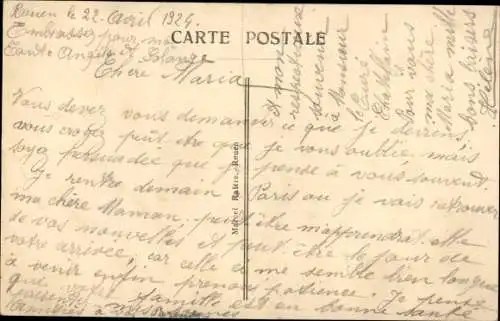 Rouen le 22 Avril 1924
Embrasser pour moi
Tante Angèle et Solange
CARTE POSTALE
Chère Maria
Vous devez vous demander ce que je deviens,
vous croyez peut être que je vous oublie mais
soyez persuadée que je pense à vous souvent.
Je rentre demain à Paris ou je vais retrouver
ma chère Maman, peut être m'apprendrat elle
de vos nouvelles et peut être le jour de
votre arrivée, car celle ci me semble bien longue
à venir enfin prenons patience. Je pense
que votre famille est en bonne santé
Marcel Rolère-Rouen
à mon
respectueux
souvenir
à Monsieur
le Curé
Chatelain
et Pour vous
ma chère
Maria mille
bons baisers
Hélène